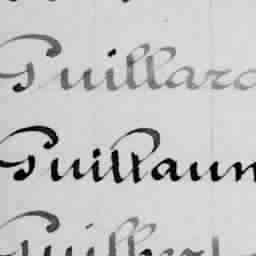 Guillard
Guillaum
Guilbert